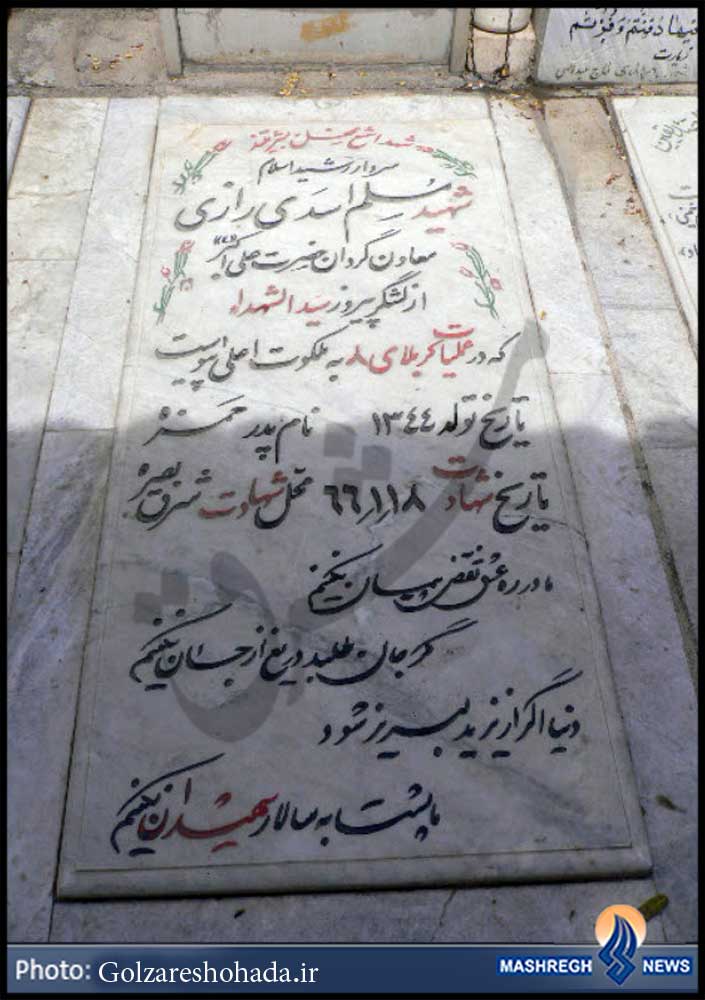 فیها دفنتم و فزتم
زیارت
شهدا شمع محفل بشریتند
سردار رشید اسلام
شهید مسلم اسدی رازی
معاون گردان حضرت علی اکبر
از لشگر پیروز سید الشهداء
که در عملیات کربلای ۸ به ملکوت اعلی پیوست
تاریخ تولد ۱۳۴۴ نام پدر حمزه
تاریخ شهادت ۶۶،۱،۱۸ محل شهادت شرق بصره
ما در ره عشق نقض پیمان نکنیم
گر جان طلبد دریغ از جان نکنیم
دنیا اگر از یزید لبریز شود
ما پشت به سالار شهیدان نکنیم
Photo: Golzareshohada.ir
MASHREGH NEWS